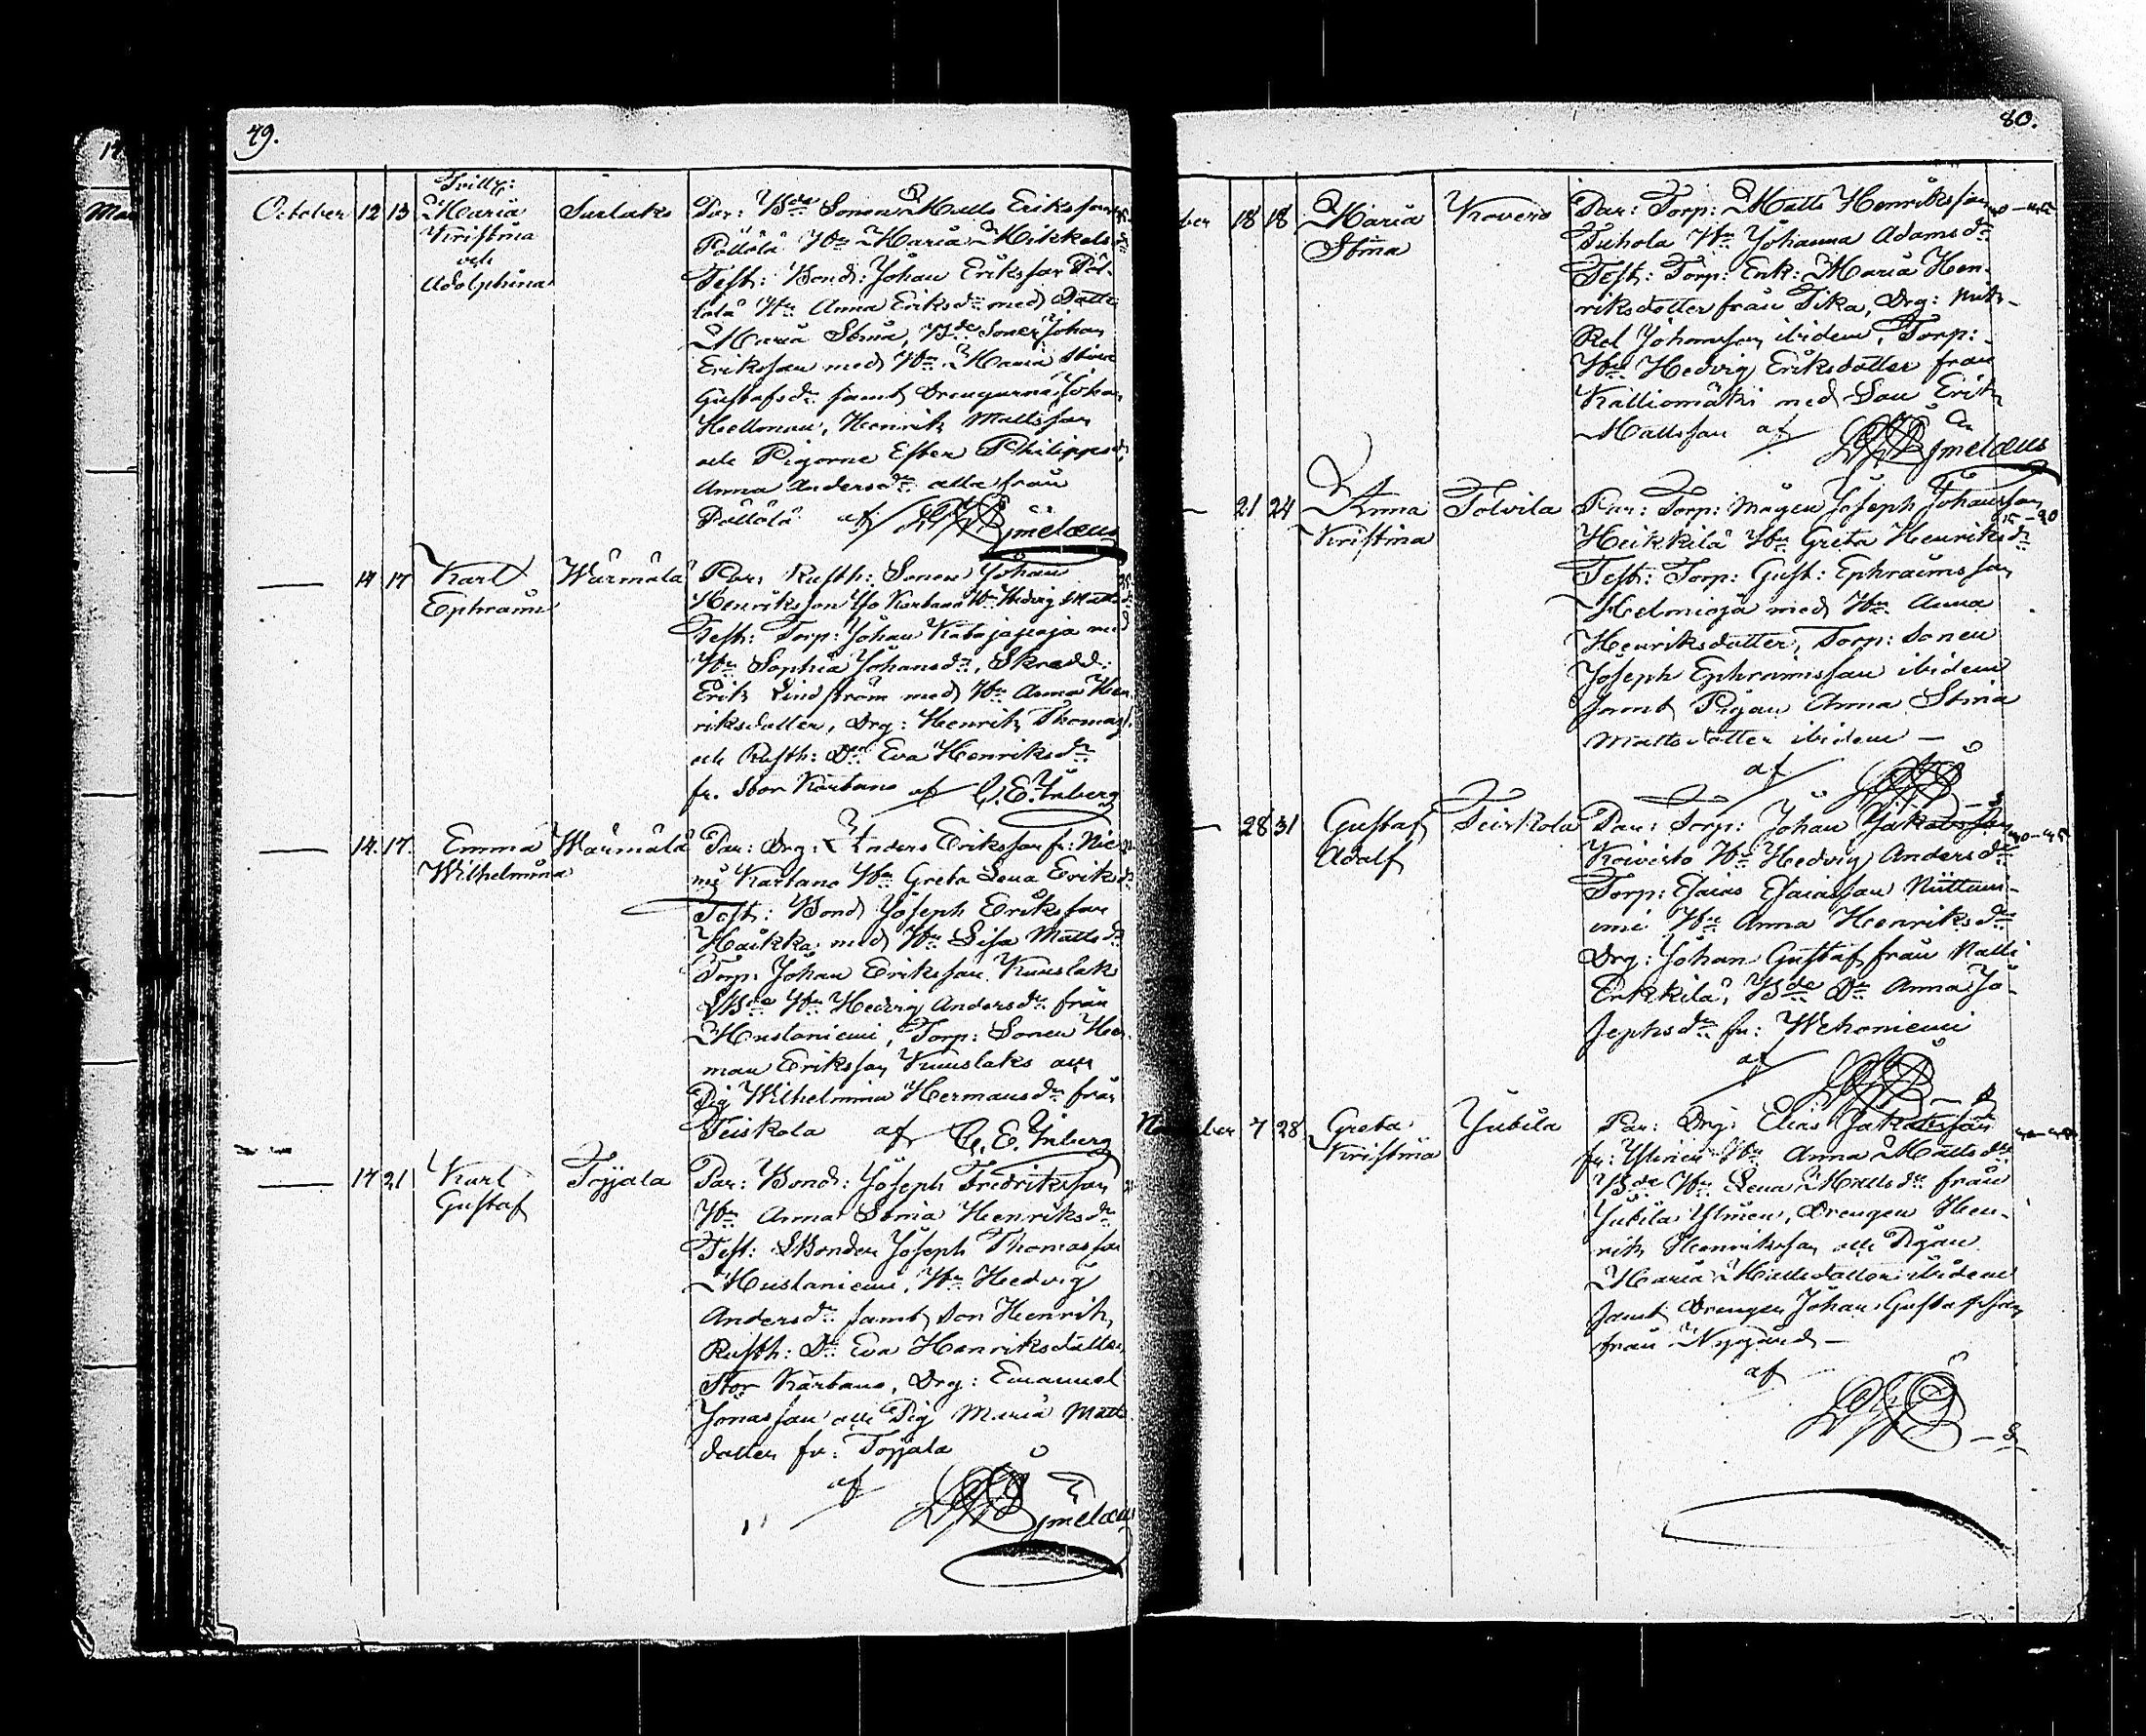 79.
October 12 13 Tvill: Maria Kristina och Adolphina Surlaks
Par: Bde Sonen Matts Eriksson
Pöllölä Hu Maria Mikkelsdr
Test: Bond: Johan Eriksson Pöl-
lölä Hu Anna Eriksdr med Dotter
Maria Stina, Bde Sonen Johan
Eriksson med Hu Maria Stina
Gustafsdr samt Drengarna Johan
Hellman, Henrik Mattsson
och Pigorne Ester Philipsdr
Anna Andersdr alla från
Pöllölä af
— 14 17 Karl Ephraim Wärmälä
Par: Rusth: Sonen Johan
Henriksson Iso Kartano Hu Hedvig Mattsdr
Test: Torp: Johan Katajapaja med
Hu Sophia Johansdr, Skradd:
Erik Lindström med Hu Anna Hen-
riksdotter, Drg: Henrik Thomass.
och Rusth: Dr Eva Henriksdr
fr. Stor Kartano af C. E. Inberg
— 14. 17. Emma Wilhelmina Wärmälä
Par: Drg: Anders Eriksson fr: Nie-
mi Kartano Hu Greta Lena Eriksdr
Test: Bond Joseph Eriksson
Haikka med Hu Lisa Mattsdr
Torp: Johan Eriksson Kuuslaks
Bde Hu Hedvig Andersdr från
Mustaniemi, Torp: Sonen Her-
man Eriksson Kuuslaks och
Pig Wilhelmina Hermansdr från
Teiskola af C. E. Inberg
— 17 21 Karl Gustaf Tojjala
Par: Bond: Joseph Fredriksson
Hu Anna Stina Henriksdr
Test: Bonden Joseph Thomasson
Mustaniemi, Hu Hedvig
Andersdr samt Son Henrik,
Rusth: Dr Eva Henriksdotter
Stor Kartano, Drg: Emanuel
Jonasson och Pig Maria Matts-
dotter fr: Tojjala
af
80.
ber 18 18 Maria Stina Kovero
Par: Torp: Matts Henriksson
Tuhola Hu Johanna Adamsdr
Test: Torp: Enk: Maria Hen-
riksdotter från Tika, Drg: Mik-
kel Johansson ibidem, Torp:
Hu Hedvig Eriksdotter från
Kalliomäki med Son Erik
Mattsson af
— 21 24 Anna Kristina Tolvila
Par: Torp: Mågen Joseph Johansson
Heikkilä Hu Greta Henriksdr
Test: Torp: Gust: Ephraimsson
Helmioja med Hu Anna
Henriksdotter, Torp: Sonen
Joseph Ephraimsson ibidem
samt Pigan Anna Stina
Mattsdotter ibidem —
af
— 28 31 Gustaf Adolf Teiskola
Par: Torp: Johan Jakobsson
Koivisto Hu Hedvig Andersdr
Torp: Esaias Esaiasson Niittum-
mi Hu Anna Henriksdr
Drg: Johan Gustaf från Nalli
Erkkilä, Bde Dr Anna Jo-
sephsdr fr: Wehoniemi
af
November 7 28 Greta Kristina Jutila
Par: Drg: Elias Jakobsson
fr: Ylinen Hu Anna Mattsdr
Bde Hu Lena Mattsdr från
Jutila Ylinen, Drengen Hen-
rik Henriksson och Pigan
Maria Mattsdotter ibidem
samt Drengen Johan Gustafsson
från Nygård —
af